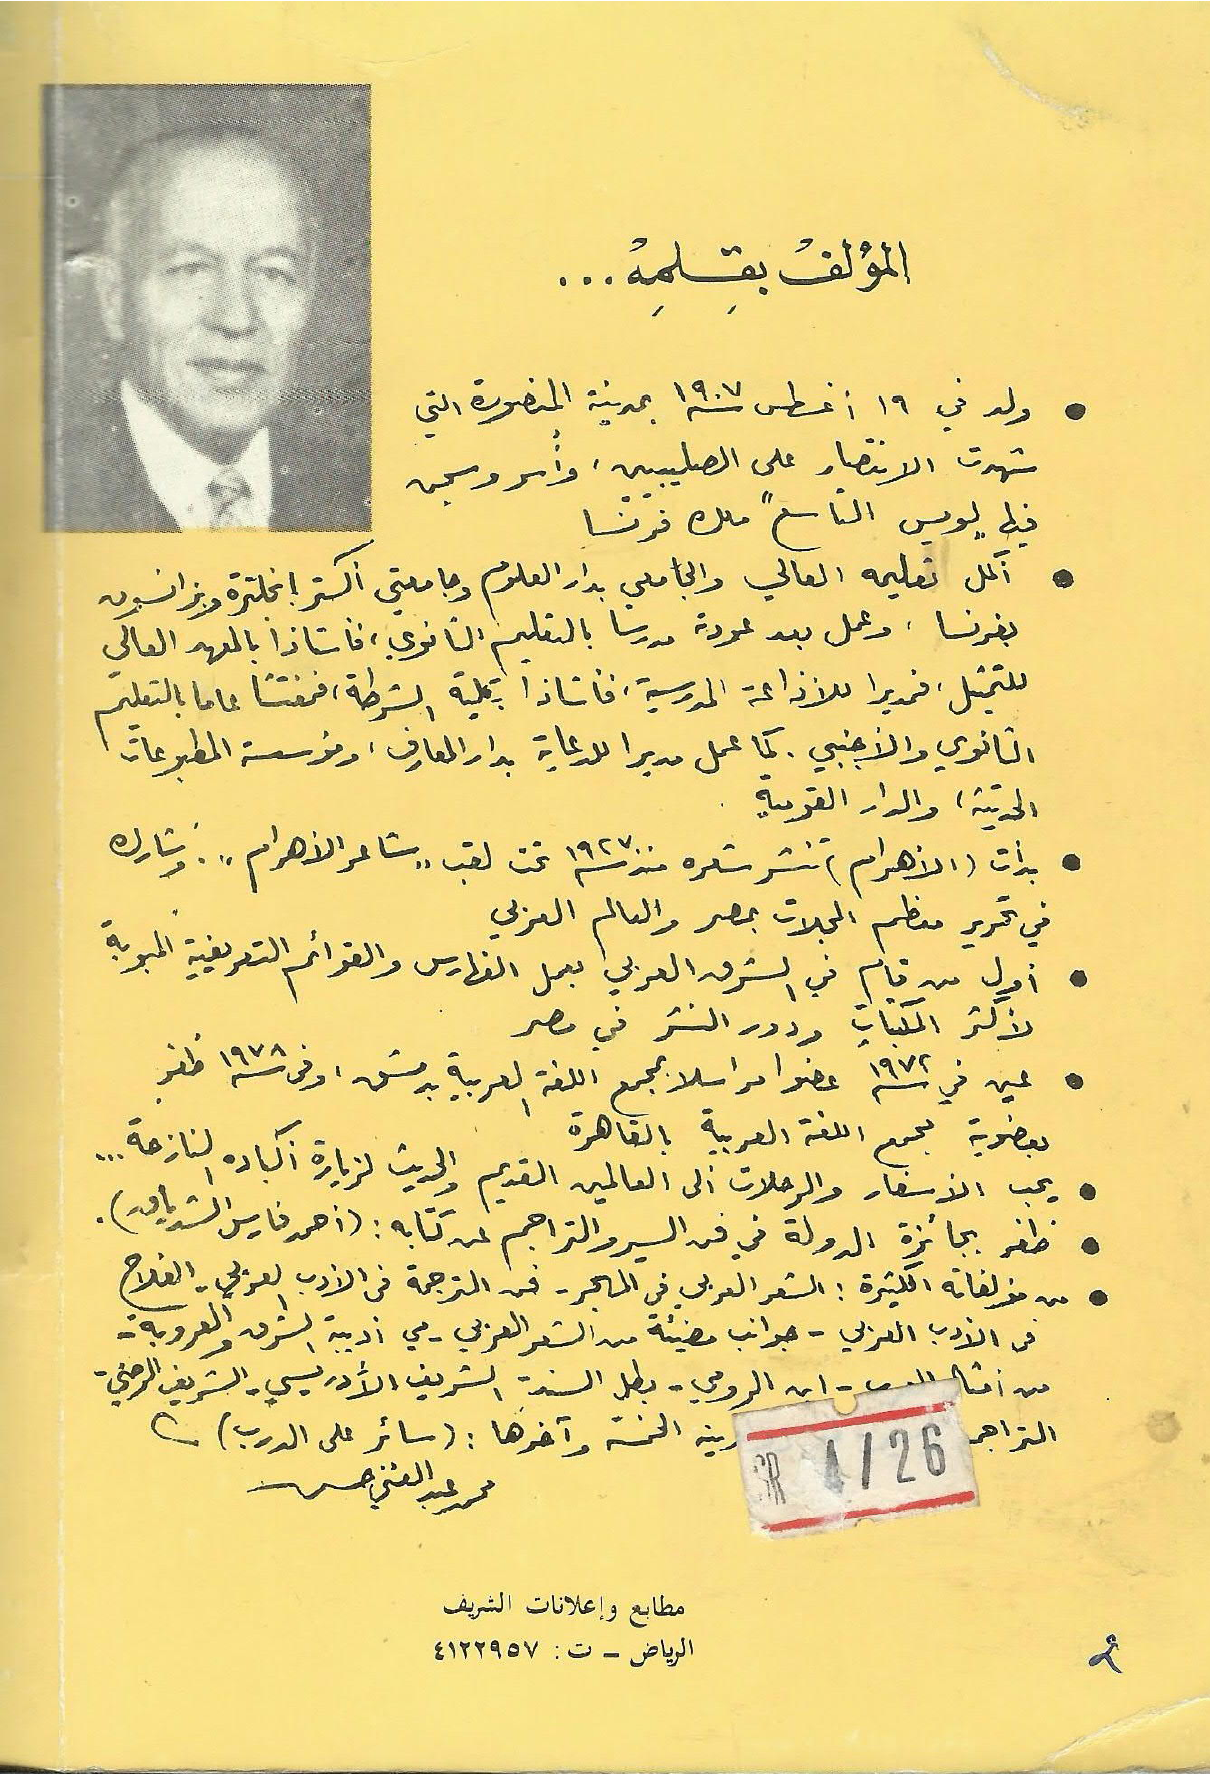 المؤلفُ بقِلمِهُ ...
ولد في ١٩ أغسطس سنة ١٩٠٧ بمدينة المنصورة التي
شهدت الانتصار على الصليبيين، وأُسر وسجن
فيها "لويس التاسع" ملك فرنسا
أكمل تعليمه العالي والجامعي بدار العلوم وجامعتي أكستر بإنجلترة وبزانسون
بفرنسا، وعمل بعد عودته مدرسا بالتعليم الثانوي، فأستاذا بالمعهد العالي
للتمثيل، فمديرا للإذاعة المدرسية، فأستاذا بكلية الشرطة، فمفتشا عاما بالتعليم
الثانوي والأجنبي. كما عمل مديرا للدعاية بدار المعارف، ومؤسسة المطبوعات
الحديثة، والدار القومية.
بدأت (الأهرام) تنشر شعره منذ سنة ١٩٢٧ تحت لقب "شاعر الأهرام". وشارك
في تحرير معظم المجلات بمصر والعالم العربي
أول من قام في الشرق العربي بعمل الفهارس والقوائم التعريفية المبوبة
لأكثر المكتبات ودور النشر في مصر
عين في سنة ١٩٧٢ عضوا مراسلا بمجمع اللغة العربية بدمشق، وفى سنة ١٩٧٨ ظفر
بعضوية مجمع اللغة العربية بالقاهرة
يحب الأسفار والرحلات إلى العالمين القديم والحديث لزيارة أكباده النازحة ...
ظفر بجائزة الدولة في فن السير والتراجم عن كتابه: (أحمد فارس الشدياق).
من مؤلفاته الكثيرة: الشعر العربي في المهجر - فن الترجمة فى الأدب العربي - الفلاح
فى الأدب العربي - جوانب مضيئة من الشعر العربي - مي أديبة الشرق والعروبة -
من أمثال العرب - ابن الرومي - بطل السند - الشريف الإدريسي - الشريف الرضي -
التراجم الخمسة وآخرها: (سائر على الدرب)
محمد عبد الغني حسن
SR 1/26
مطابع وإعلانات الشريف
الرياض – ت: ٤١٢٢٩٥٧